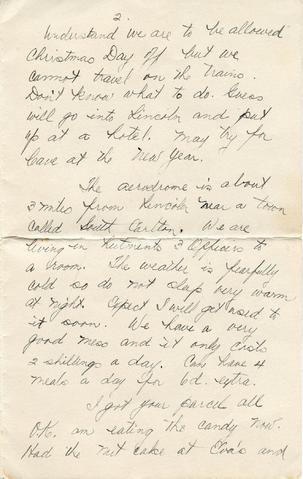 2.
Understand we are to be allowed
Christmas Day off but we
cannot travel on the trains.
Don't know what to do. Guess
will go into Lincoln and put
up at a hotel. May try for
leave at the New Year.
The aerodrome is about
3 miles from Lincoln near a town
called South Carlton. We are
living in hutments 3 Officers to
a room. The weather is fearfully
cold so do not sleep very warm
at night. Expect I will get used to
it soon. We have a very
good mess and it only costs
2 shillings a day. Can have 4
meals a day for 6d. extra.
I got your parcel all
O.K. am eating the candy now.
Had the nut cake at Eva's and